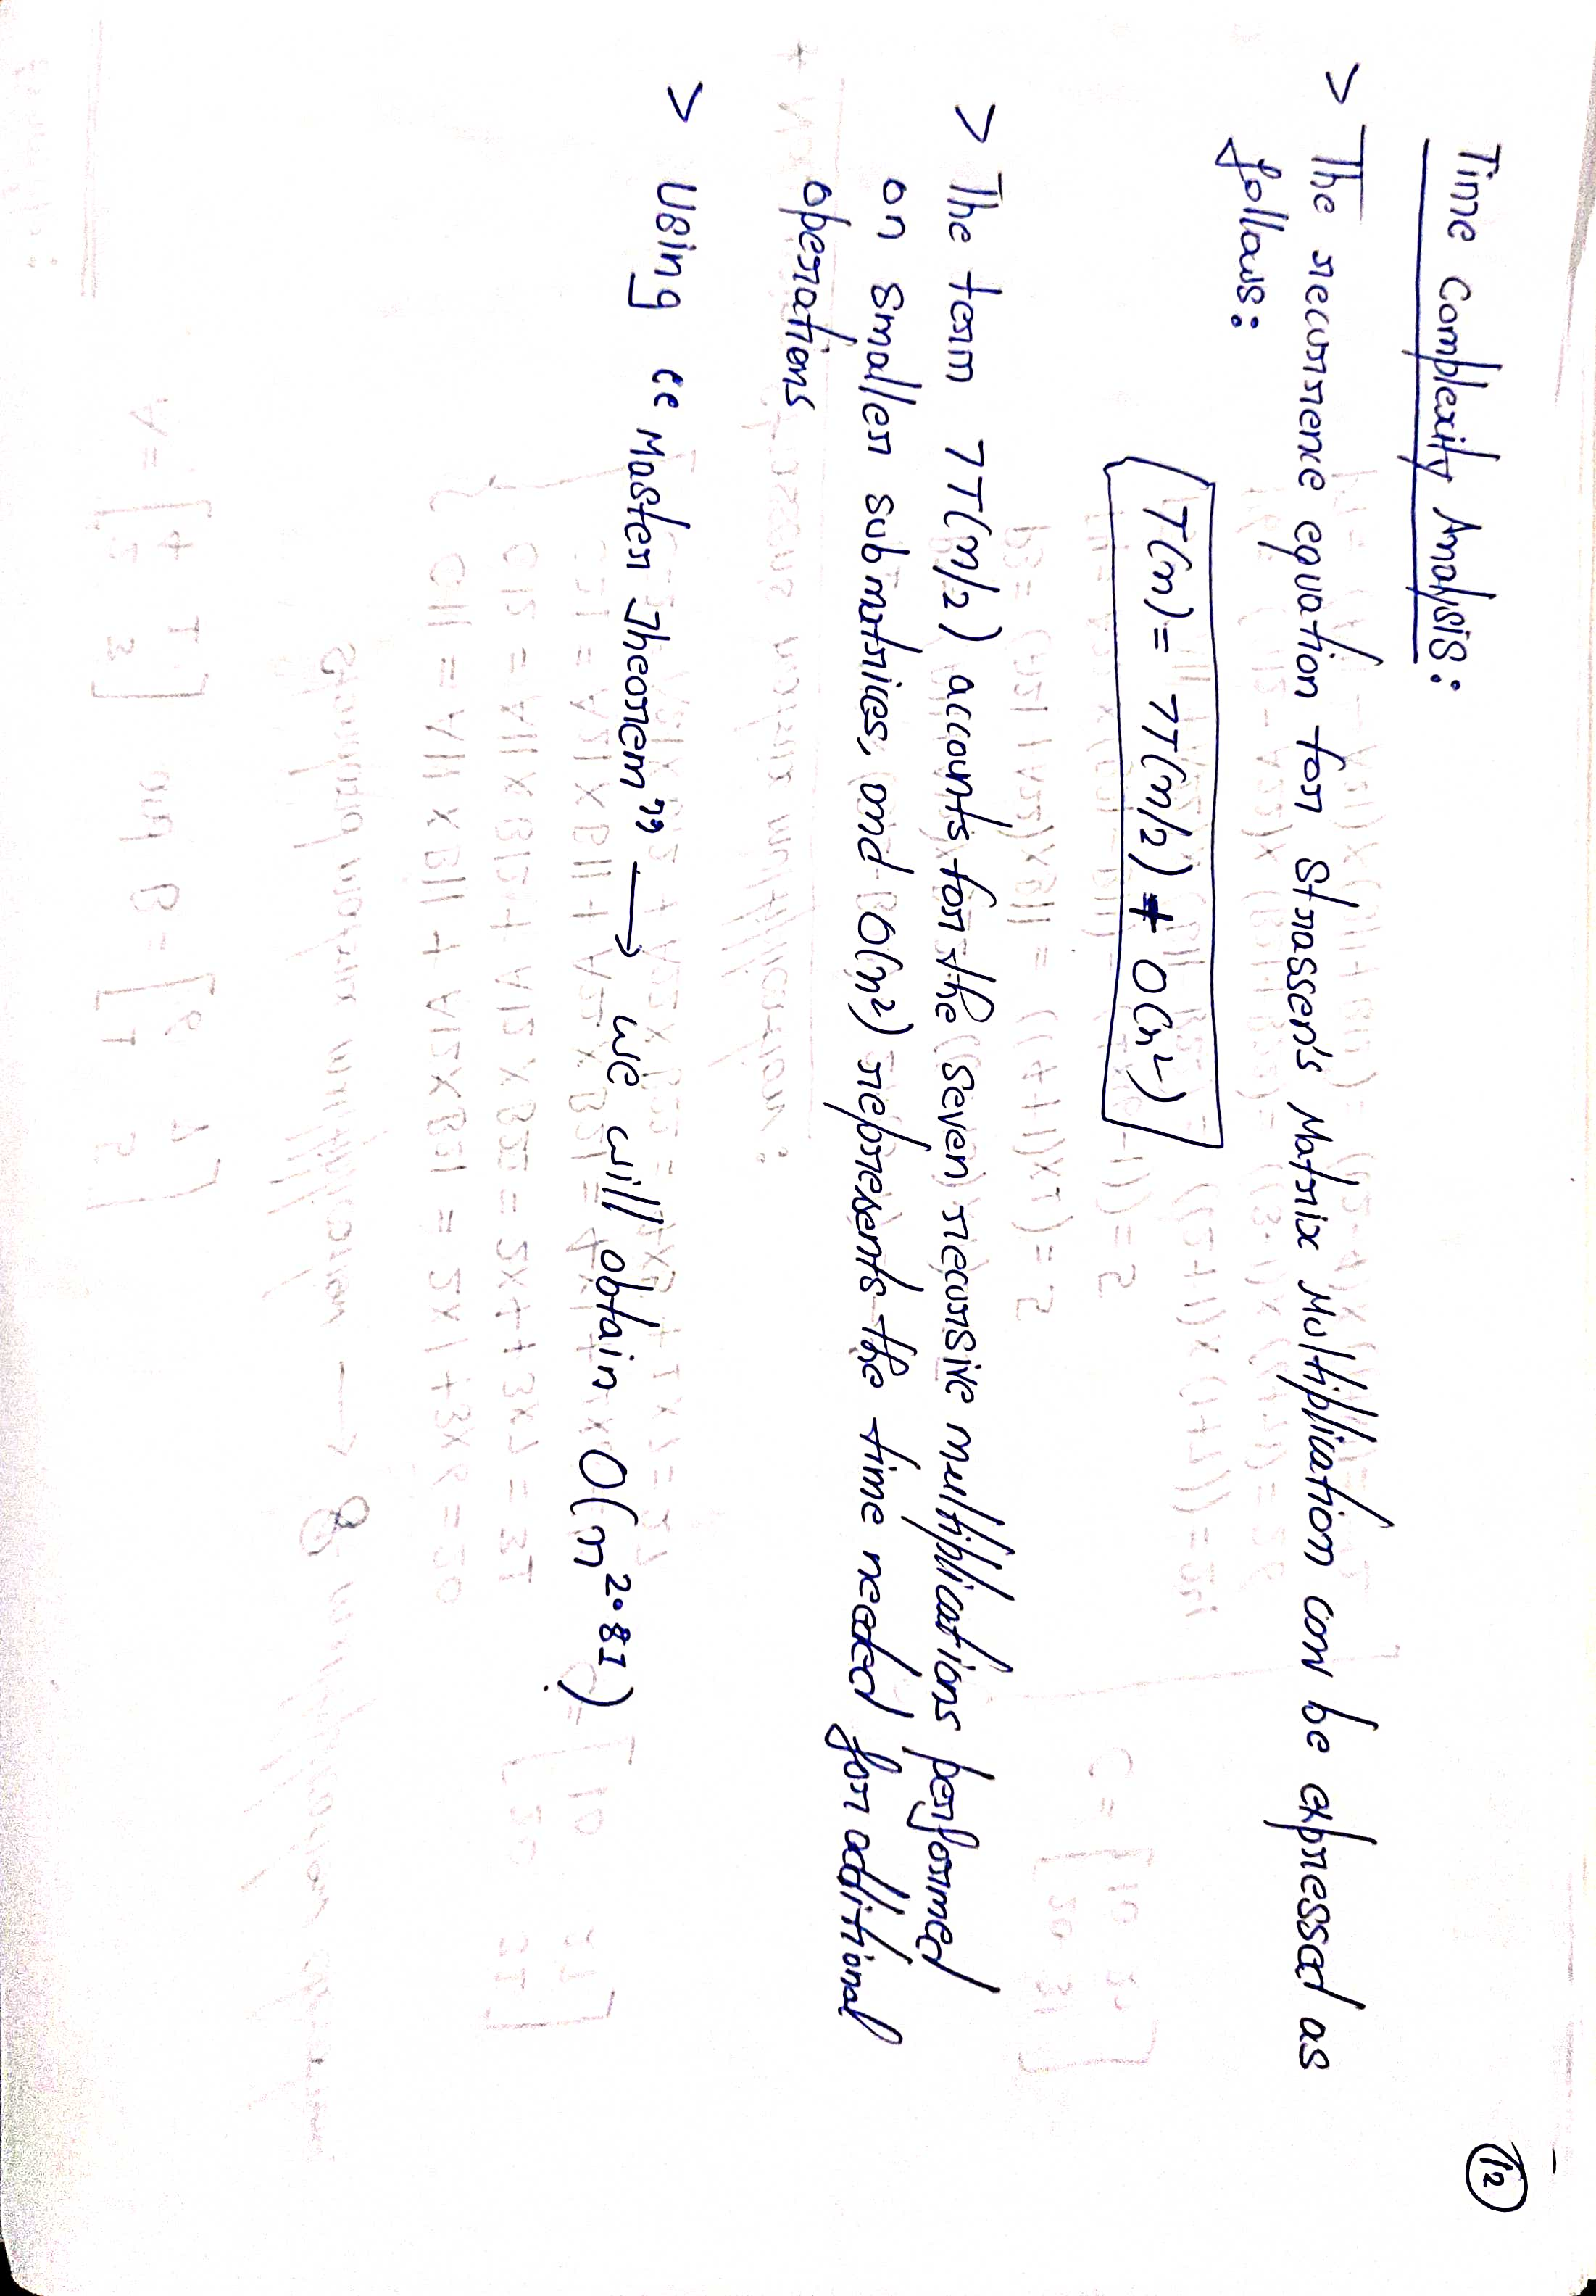 12
Time Complexity Analysis:
> The recurrence equation for Strassen's Matrix Multiplication can be expressed as
follows:
T(n) = 7T(n/2) + O(n²)
> The term 7T(n/2) accounts for the seven recursive multiplications performed
on smaller submatrices, and O(n²) represents the time needed for additional
operations
> Using "Master Theorem" → we will obtain O(n^2.81)